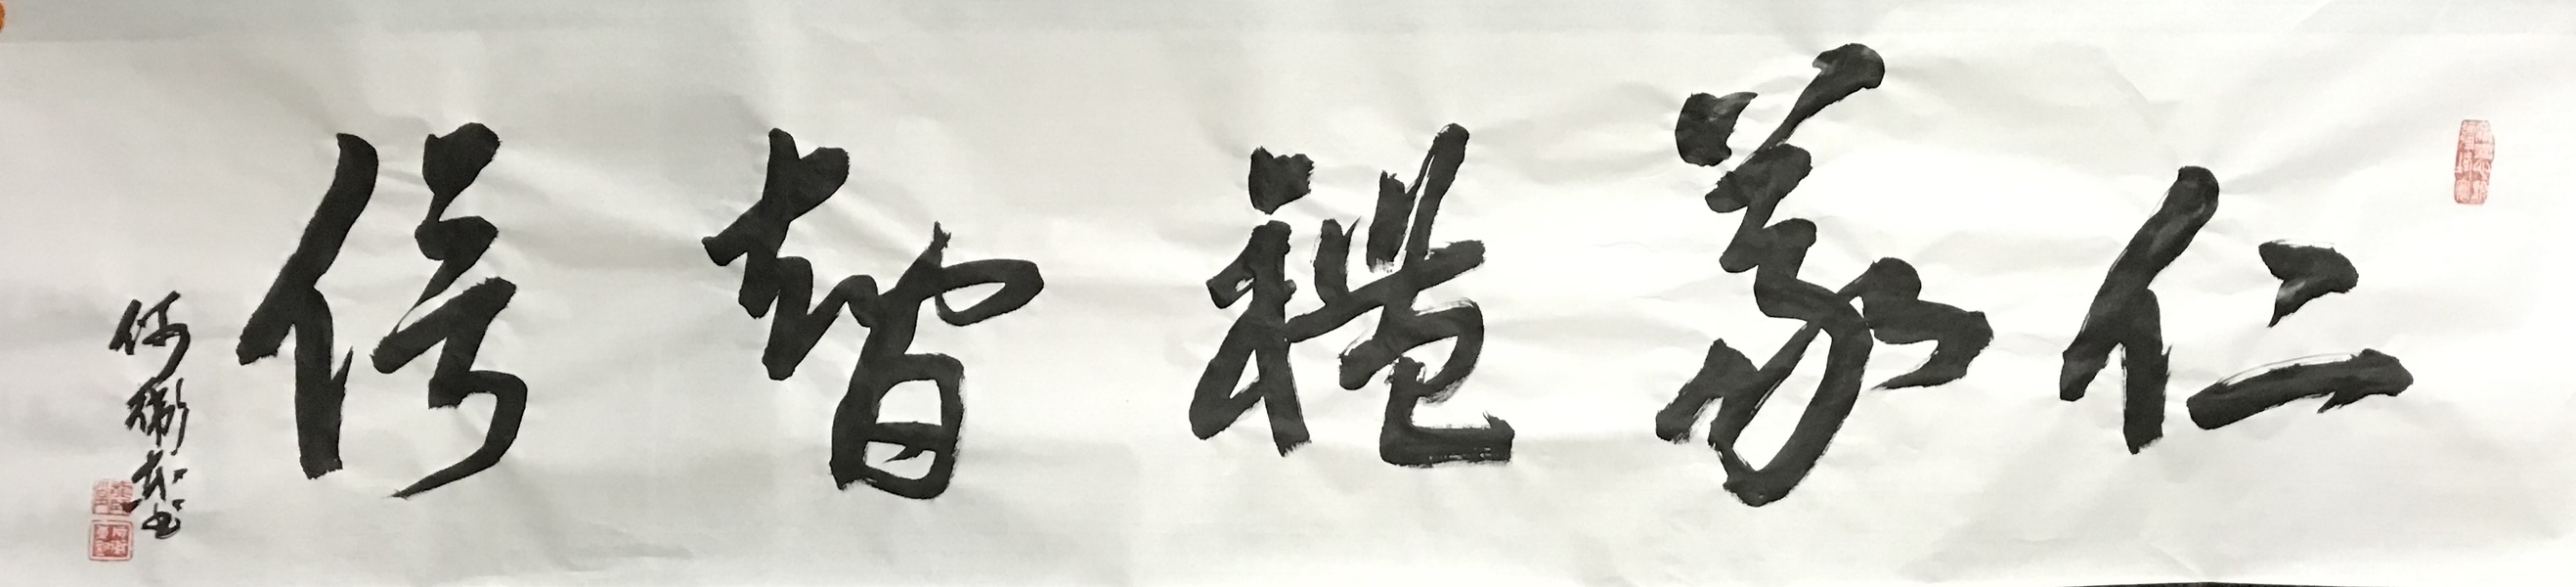 仁義禮智信
何衛
書